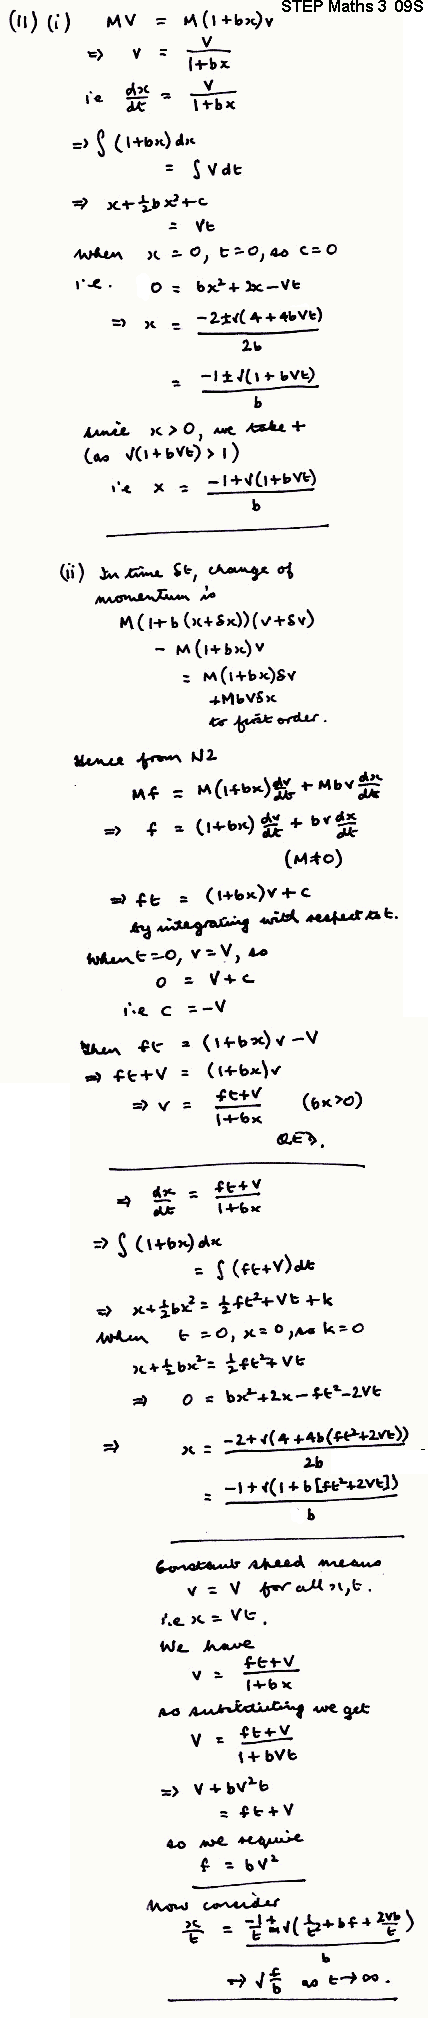 STEP Maths 3 09S
(11) (i) MV = M(1+bx)v
⇒ v = V/(1+bx)
i.e dx/dt = V/(1+bx)
⇒ ∫ (1+bx) dx
= ∫ V dt
⇒ x+½bx²+c
= Vt
when x = 0, t=0, so c=0
i.e. 0 = bx²+2x−Vt
⇒ x = (−2±√(4+4bVt))/2b
= (−1±√(1+bVt))/b
since x>0, we take +
(as √(1+bVt)>1)
i.e x = (−1+√(1+bVt))/b
(ii) In time δt, change of
momentum is
M(1+b(x+δx))(v+δv)
− M(1+bx)v
= M(1+bx)δv
+Mbvδx
to first order.
Hence from N2
Mf = M(1+bx)dv/dt + Mbv dx/dt
⇒ f = (1+bx) dv/dt + bv dx/dt
(M≠0)
⇒ ft = (1+bx)v+c
by integrating with respect to t.
When t=0, v=V, so
0 = V+c
i.e c = −V
Then ft = (1+bx)v−V
⇒ ft+V = (1+bx)v
⇒ v = (ft+V)/(1+bx) (bx>0)
QED.
⇒ dx/dt = (ft+V)/(1+bx)
⇒ ∫ (1+bx) dx
= ∫ (ft+V) dt
⇒ x+½bx² = ½ft²+Vt+k
when t=0, x=0, so k=0
x+½bx² = ½ft²+Vt
⇒ 0 = bx²+2x−ft²−2Vt
⇒ x = (−2+√(4+4b(ft²+2Vt)))/2b
= (−1+√(1+b[ft²+2Vt]))/b
Constant speed means
v = V for all x,t.
i.e x = Vt.
We have
v = (ft+V)/(1+bx)
so substituting we get
V = (ft+V)/(1+bVt)
⇒ V+bV²t
= ft+V
so we require
f = bV²
Now consider
x/t = (−1/t + √(1/t²+bf+2Vb/t))/b
→ √(f/b) as t→∞.